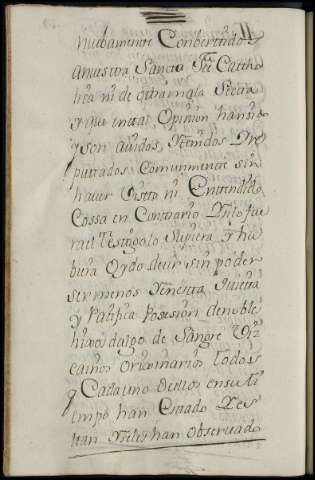 nuebamente Conbertido
anuestra Sancta Fee Catho
lica ni de otra mala Secta
y que en tal Opinion han sido
y son avidos, Y tenidos Y re
putados Comunmente sin
haver Visto ni Entendido
Cossa en Contrario Y si lo fue
ra el Testigo lo Supiera Y hu
biera Oydo decir sin poder
ser menos Y en esta quieta
y Pacifica Posesion de noble
hixos dalgo de Sangre Viz
cainos originarios todos
y Cada uno dellos en su ti
empo han Estado Y es
tan Y se les han Observado